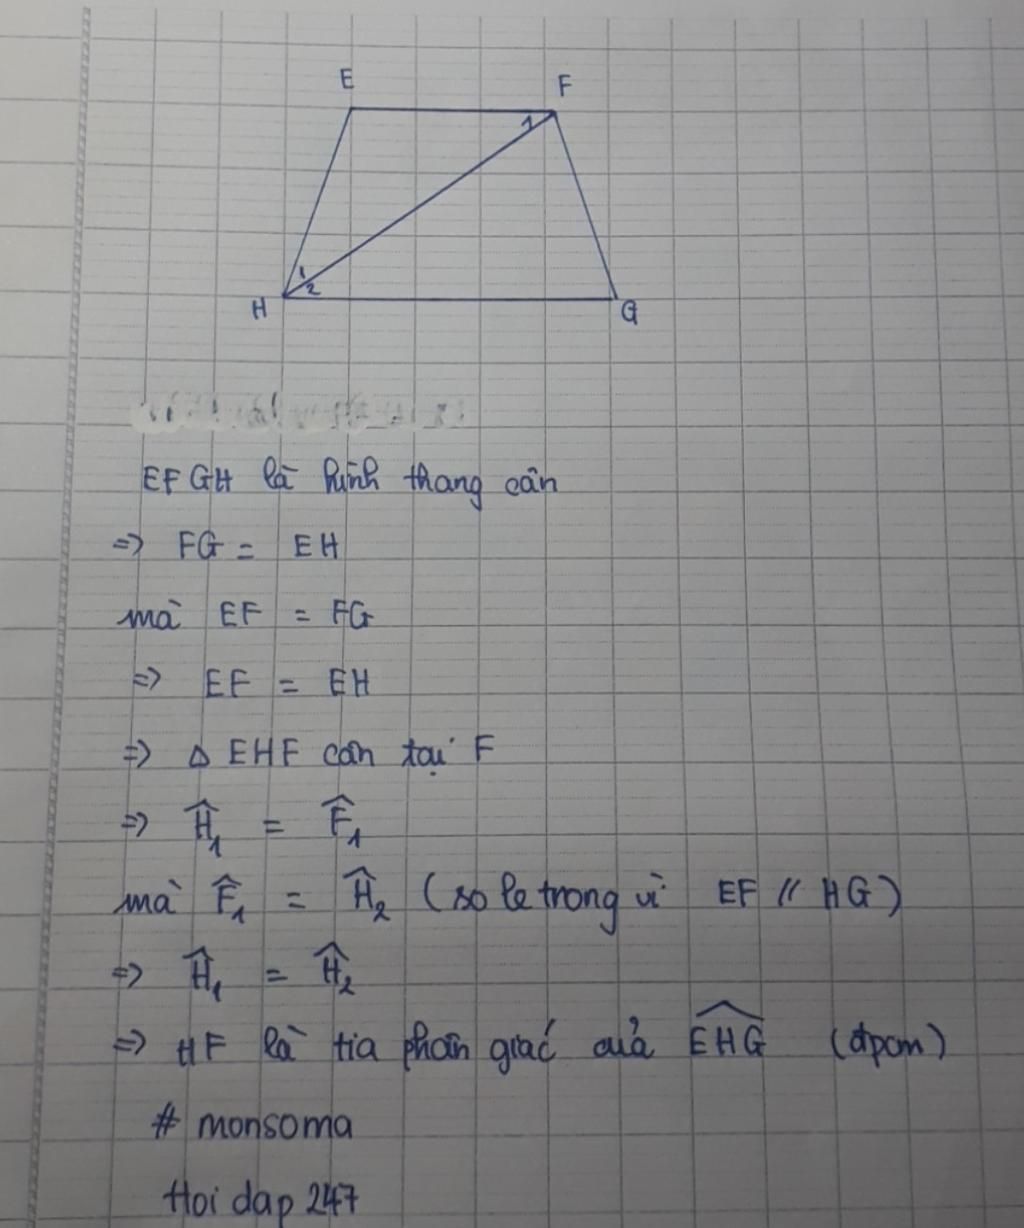 E
F
1
1
2
H
G
EFGH là hình thang cân
=> FG = EH
mà EF = FG
=> EF = EH
=> Δ EHF cân tại F
=> Ĥ₁ = F̂₁
mà F̂₁ = Ĥ₂ (so le trong vì EF // HG)
=> Ĥ₁ = Ĥ₂
=> HF là tia phân giác của \widehat{EHG} (đpcm)
# monsoma
Hoi dap 247